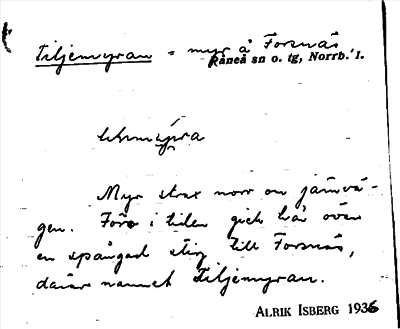 Tiljemyran = myr å Forsnäs
Råneå sn o. tg, Norrb. l.
Myr strax norr om järnvä-
gen. Förr i tiden gick här över
en spångad stig till Forsnäs,
därav namnet Tiljemyran.
ALRIK ISBERG 1936